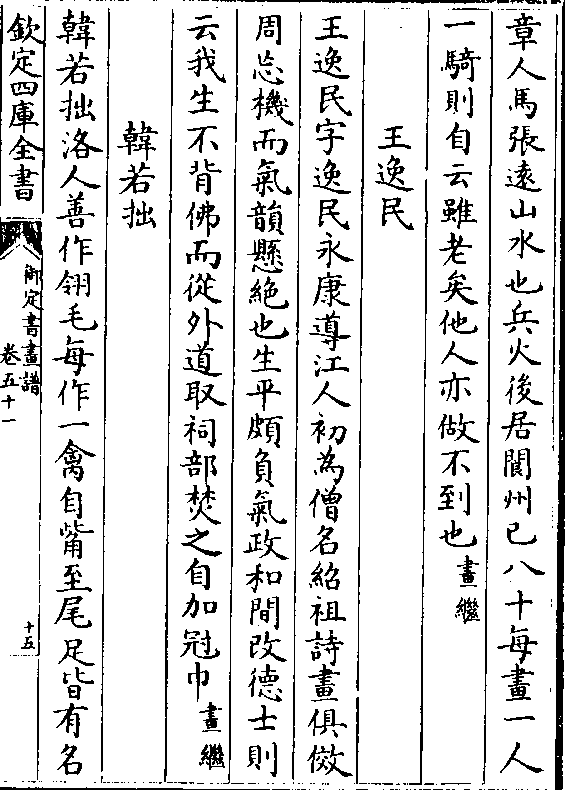 章人馬張遠山水也兵火後居閬州已八十每畫一人
一騎則自云雖老矣他人亦做不到也畫繼
王逸民
王逸民字逸民永康導江人初為僧名紹祖詩畫俱倣
周忘機而氣韻懸絶也生平頗負氣政和間改德士則
云我生不背佛而從外道取祠部焚之自加冠巾畫繼
韓若拙
韓若拙洛人善作翎毛每作一禽自觜至尾足皆有名
欽定四庫全書
御定書畫譜
卷五十一
十五